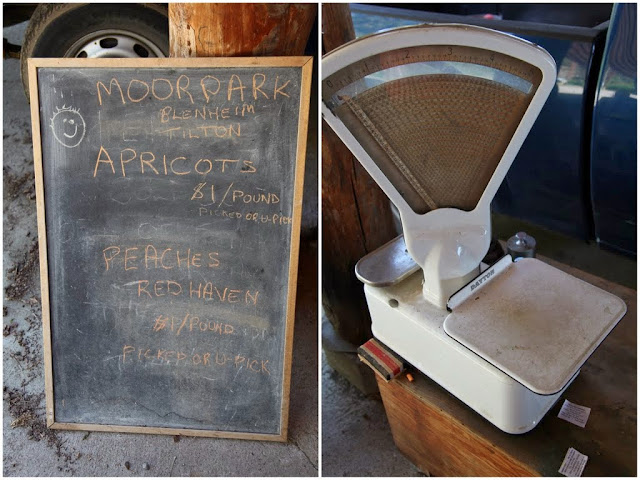 MOORPARK
BLENHEIM
TILTON
APRICOTS
$1/POUND
PICKED OR U-PICK
PEACHES
RED HAVEN
$1/POUND
PICKED OR U-PICK
DAYTON